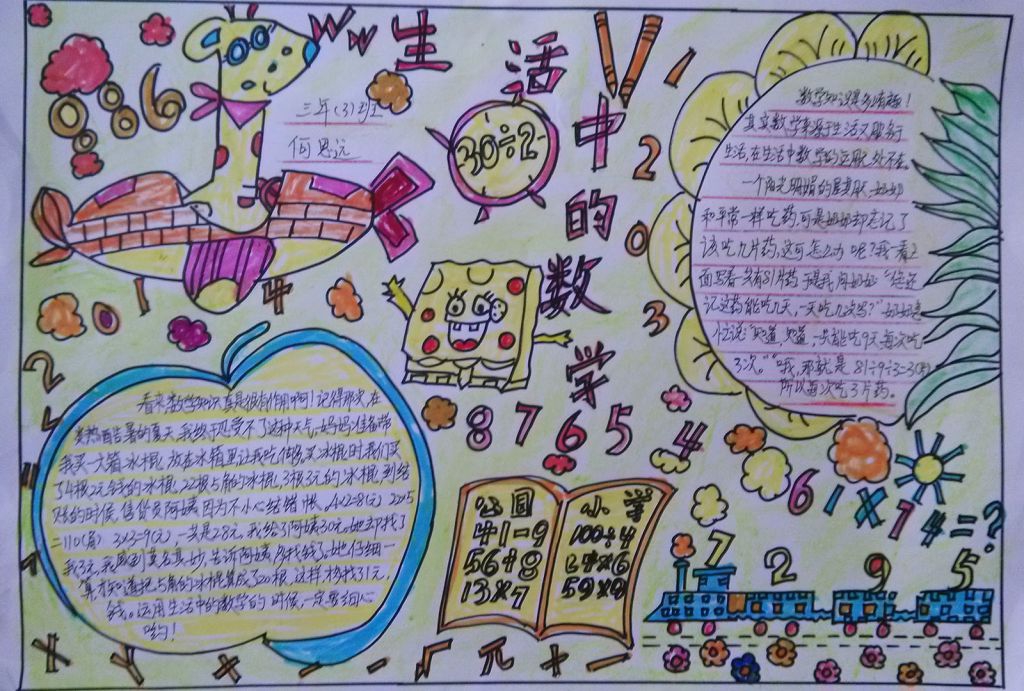 生活中的数学
三年(3)班
何思远
0 8 6
30÷2
1
4
2
1
2
0
3
8 7 6 5 4
数学知识是多有趣!
其实数学来源于生活又服务于
生活,在生活中数学的运用处处不在。
和平常一样吃药,可是奶奶却忘记了
该吃几片药,这可怎么办呢?我一看上
面写着共有81片药
记这药能吃几天,一天吃几次吗?"奶奶连
忙说:"知道,知道,一共能吃9天,每次吃
3次。""哦,那就是81÷9÷3=3(片)
所以每次吃3片药。
看来数学知识真是很有作用啊!记得那次,在
炎热酷暑的夏天,我终于忍受不了这种天气,妈妈准备带
我买一大箱冰棍,放在冰箱里让我吃个够,买冰棍时我们买
了4根2元钱的冰棍,22根5角的冰棍,3根3元的冰棍,到结
账的时候,售货员阿姨因为不小心结错帐,4×2=8(元) 22×5
=110(角) 3×3=9(元),一共是28元,我给了阿姨30元,她却找了
我3元,我感到莫名其妙,告诉阿姨多找钱了,她仔细一
算才知道把5角的冰棍算成了20根,这样多找了1元
钱。运用生活中的数学的时候,一定要细心
哟!
公园 小学
41-9 100÷4
56÷8 24×6
13×7 59×9
6 1 × 7 4 = ?
7 2 9 5
× Y ÷ × - - √ π + -